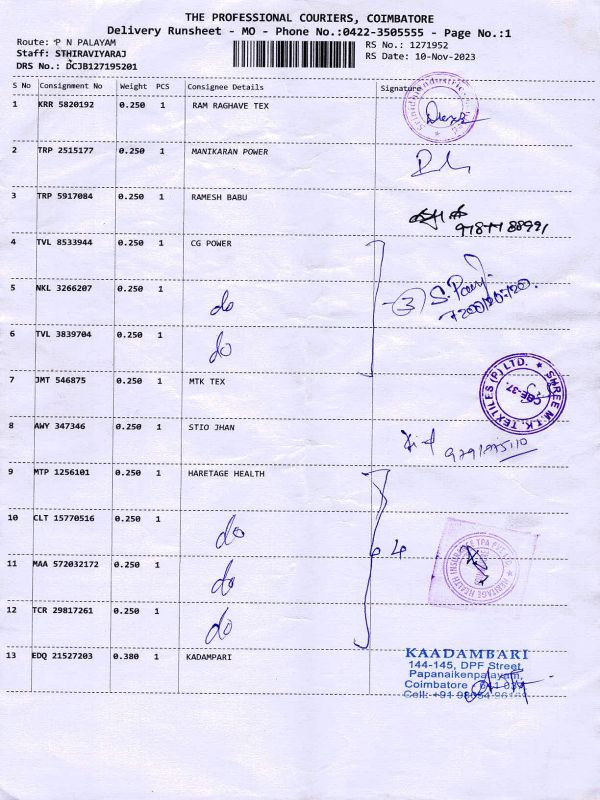 THE PROFESSIONAL COURIERS, COIMBATORE
Delivery Runsheet - MO - Phone No.:0422-3505555 - Page No.:1
Route: P N PALAYAM
RS No.: 1271952
Staff: STHIRAVIYARAJ
RS Date: 10-Nov-2023
DRS No.: DCJB127195201
S No Consignment No Weight PCS Consignee Details Signature
1 KRR 5820192 0.250 1 RAM RAGHAVE TEX
2 TRP 2515177 0.250 1 MANIKARAN POWER
3 TRP 5917084 0.250 1 RAMESH BABU
4 TVL 8533944 0.250 1 CG POWER
5 NKL 3266207 0.250 1 do
3
6 TVL 3839704 0.250 1 do
7 JMT 546875 0.250 1 MTK TEX
SHREE M.T.K. TEXTILES (P) LTD.
CBE-37.
8 AWY 347346 0.250 1 STIO JHAN
9 MTP 1256101 0.250 1 HARETAGE HEALTH
10 CLT 15770516 0.250 1 do
4
HERITAGE HEALTH INSURANCE TPA PVT. LTD.
11 MAA 572032172 0.250 1 do
12 TCR 29817261 0.250 1 do
13 EDQ 21527203 0.380 1 KADAMPARI
KAADAMBARI
144-145, DPF Street,
Papanaikenpalayam,
Coimbatore
Cell: +91